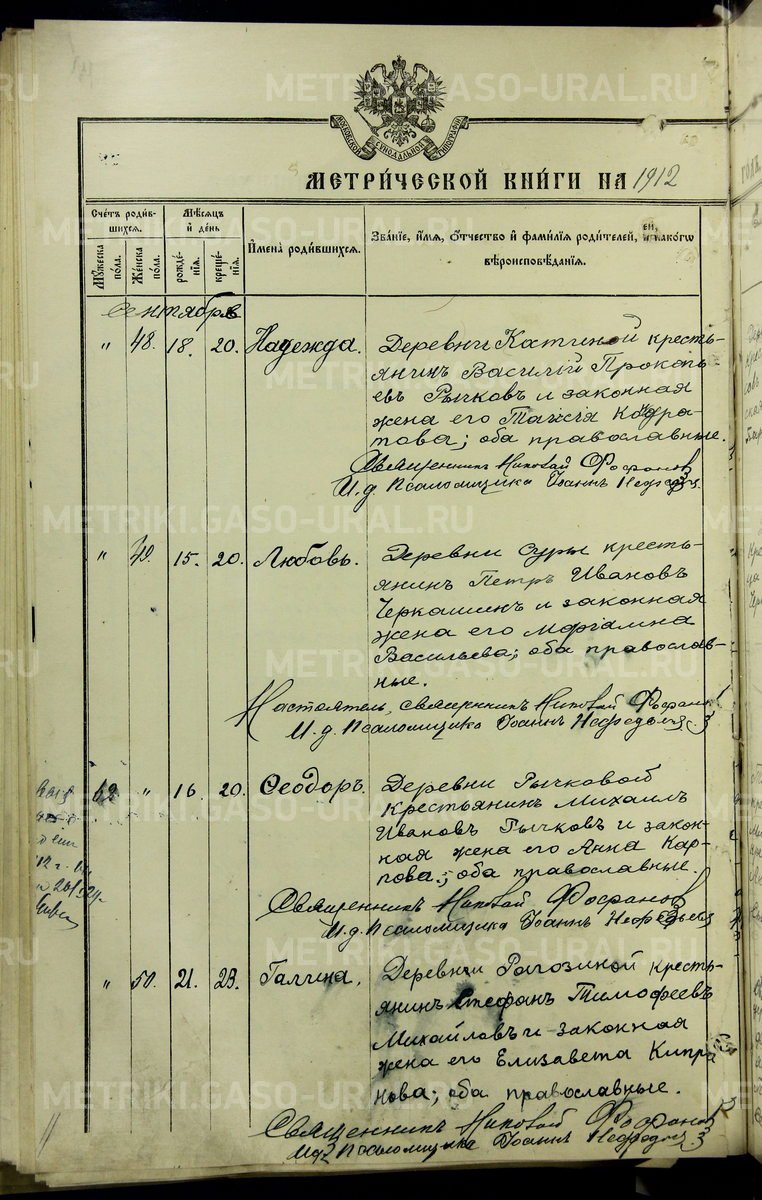 МОСКОВСКОЙ СѴНОДАЛЬНОЙ ТИПОГРАФІИ
МЕТРИ́ЧЕСКОЙ КНИ́ГИ НА 1912
Сче́тъ роди́вшихся.
Мѣ́сяцъ и҆ де́нь
И҆мена̀ роди́вшихся.
Зва́нїе, и҆́мя, ѻ҆́тчество и҆ фами́лїя роди́телей, и҆ како́гѡ
вѣроисповѣ́данїя.
Мꙋ́жеска по́ла.
Же́нска по́ла.
рожде́нїя.
креще́нїя.
Сентябрь
" 48. 18. 20. Надежда. Деревни Катиной кресть-
янинъ Василій Прокопь-
евъ Рычковъ и законная
жена его Таисія Кодра-
това; оба православные.
Священникъ Николай Фофановъ
И.д. Псаломщика Іоаннъ
" 49. 15. 20. Любовь. Деревни Суры кресть-
янинъ Петръ Ивановъ
Черкашинъ и законная
жена его
Васильева; оба православ-
ные.
Настоятель, священникъ Николай Фофановъ
И.д. Псаломщика Іоаннъ
62 " 16 20. Ѳеодоръ. Деревни Рычковой
крестьянинъ Михаилъ
Ивановъ Рычковъ и закон-
ная жена его Анна Кар-
пова; оба православные.
Священникъ Николай Фофановъ
И.д. Псаломщика Іоаннъ
" 50. 21. 23. Галина. Деревни Рагозиной кресть-
янинъ Стефанъ Тимофеевъ
Михайловъ и законная
жена его Елизавета Кипра
нова; оба православные.
Священникъ Николай Фофановъ
Псаломщика Іоаннъ
METRIKI.GASO-URAL.RU